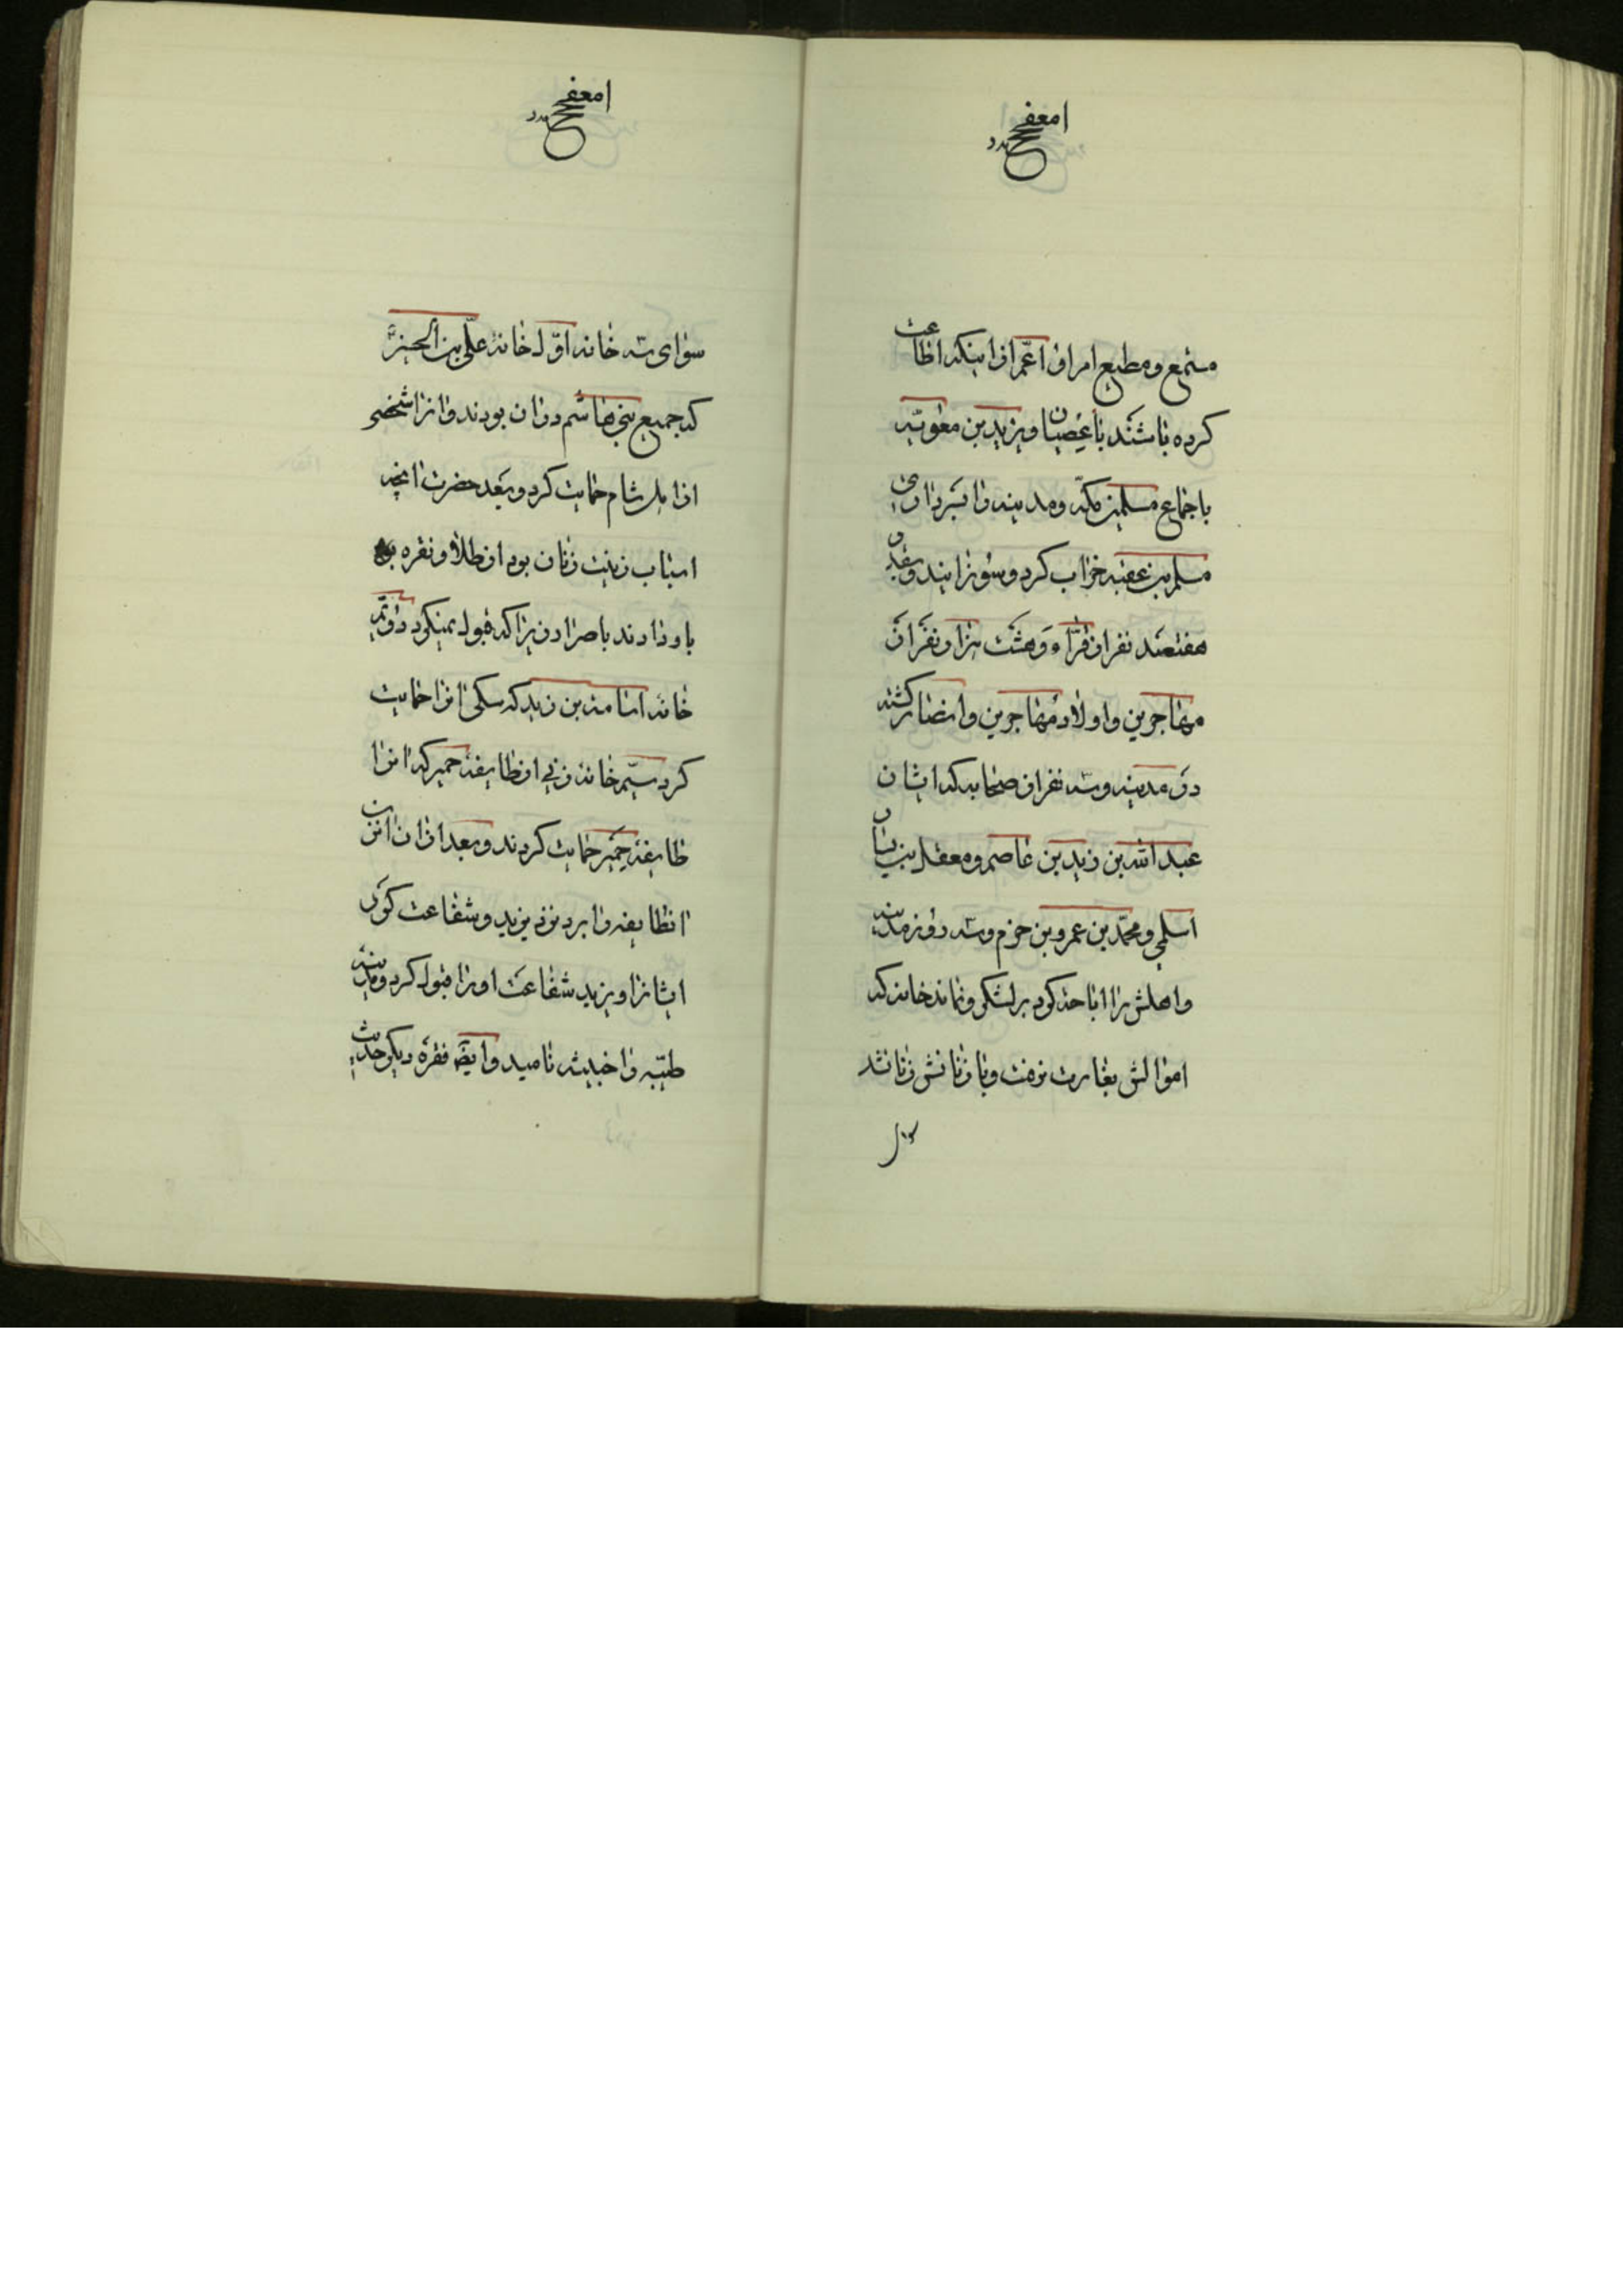 مستمع و مطیع امر او اعم از اینکه اطاعت
کرده باشند یا عصیان و یزید بن معویه
باجماع مسلمین مکه و مدینه را بسرداری
مسلم بن عقبه خراب کرد و سوزانید و بقدر
هفتصد نفر از قراء و هشت هزار نفر از
مهاجرین و اولاد مهاجرین و انصار کشته
در مدینه و سه نفر از صحابه که ایشان
عبد الله بن زید بن عاصم و معقل بن سنان
اسلمی و محمد بن عمرو بن حزم و سه روز مدینه
و اهلش را اباحه کرد بر لشکر و نماند خانه که
اموالش بغارت نرفت و با زنانش زنا نشد
سوای سه خانه اول خانه علی بن الحسین
که جمیع بنی هاشم در آن بودند و آنرا شخصی
از اهل شام حمایت کرد و بعد حضرت آنچه
اسباب زینت زنان بود از طلا و نقره
باو دادند باصرار زیرا که قبول نمیکرد دویم
خانه اسامة بن زید که سکی آنرا حمایت
کرد سیم خانه زنی از طایفه حمیر که آنرا
طایفه حمیر حمایت کردند و بعد از آن آنزن
انطایفه را برد نزد یزید و شفاعت کرد
ایشانرا و یزید شفاعت او را قبول کرد و مدینه
طیبه را خبیثه نامید و ایضا فقره دیگر حدیث